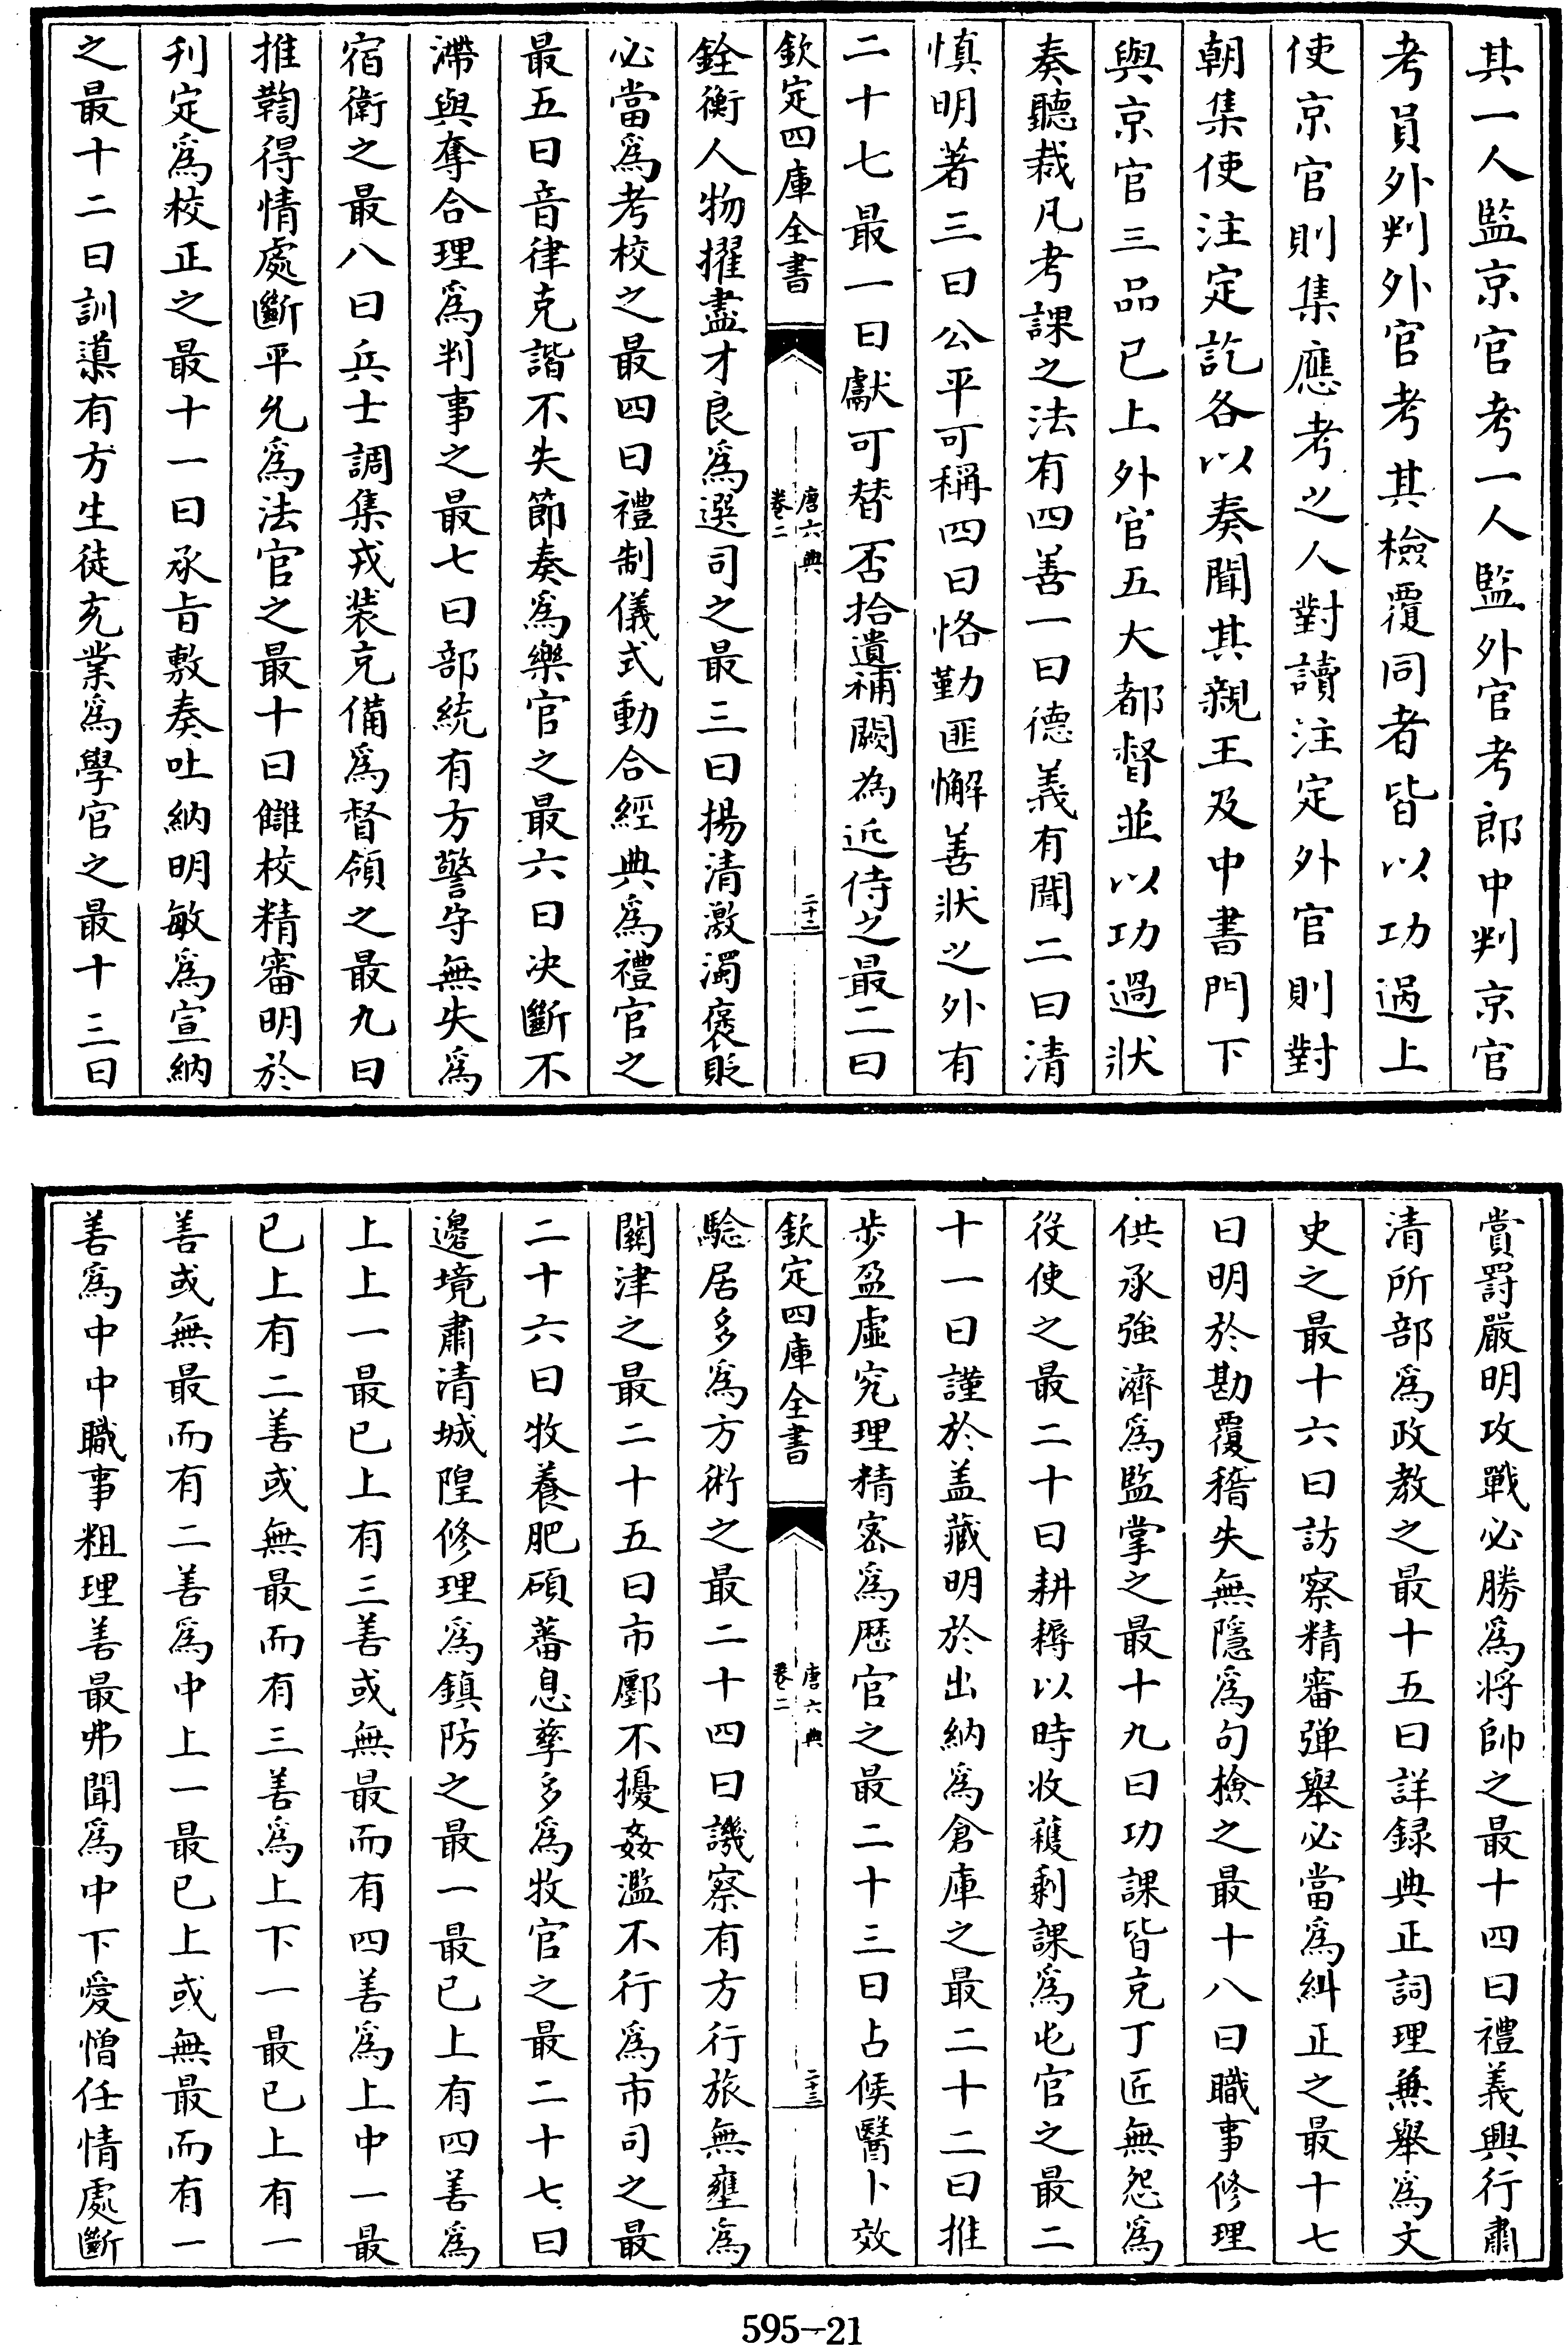 其一人監京官考一人監外官考郎中判京官
考員外判外官考其檢覆同者皆以功過上
使京官則集應考之人對讀注定外官則對
朝集使注定訖各以奏聞其親王及中書門下
與京官三品已上外官五大都督並以功過狀
奏聽裁凡考課之法有四善一曰德義有聞二曰清
慎明著三曰公平可稱四曰恪勤匪懈善狀之外有
二十七最一曰獻可替否拾遺補闕為近侍之最二曰
欽定四庫全書
唐六典
卷二
二十二
銓衡人物擢盡才良爲選司之最三曰揚清激濁褒貶
必當爲考校之最四曰禮制儀式動合經典爲禮官之
最五曰音律克諧不失節奏爲樂官之最六曰决斷不
滯與奪合理爲判事之最七曰部統有方警守無失爲
宿衛之最八曰兵士調集戎裝充備爲督領之最九曰
推鞫得情處斷平允爲法官之最十曰讎校精審明於
刋定爲校正之最十一曰承旨敷奏吐納明敏爲宣納
之最十二曰訓導有方生徒充業爲學官之最十三曰
賞罰嚴明攻戰必勝爲將帥之最十四曰禮義興行肅
清所部爲政教之最十五曰詳録典正詞理兼舉爲文
史之最十六曰訪察精審弹舉必當爲糾正之最十七
曰明於勘覆稽失無隱爲句檢之最十八曰職事修理
供承強濟爲監掌之最十九曰功課皆充丁匠無怨爲
役使之最二十曰耕耨以時收穫剩課爲屯官之最二
十一曰謹於盖藏明於出納爲倉庫之最二十二曰推
步盈虛究理精宻爲歴官之最二十三曰占候醫卜效
欽定四庫全書
唐六典
卷二
二十三
驗居多爲方術之最二十四曰譏察有方行旅無壅爲
關津之最二十五曰市廛不擾姦濫不行爲市司之最
二十六曰牧養肥碩蕃息孳多爲牧官之最二十七曰
邊境肅清城隍修理爲鎮防之最一最已上有四善爲
上上一最已上有三善或無最而有四善爲上中一最
已上有二善或無最而有三善爲上下一最已上有一
善或無最而有二善爲中上一最已上或無最而有一
善爲中中職事粗理善最弗聞爲中下愛憎任情處斷
595—21